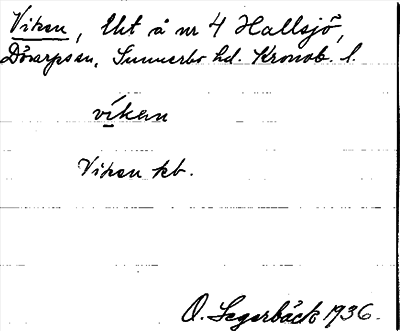 Viken, Uht å nr 4 Hallsjö,
Dörarpssn, Sunnerbo hd. Kronob. l.
víken
Viken kb.
O. Segerbäck 1936.